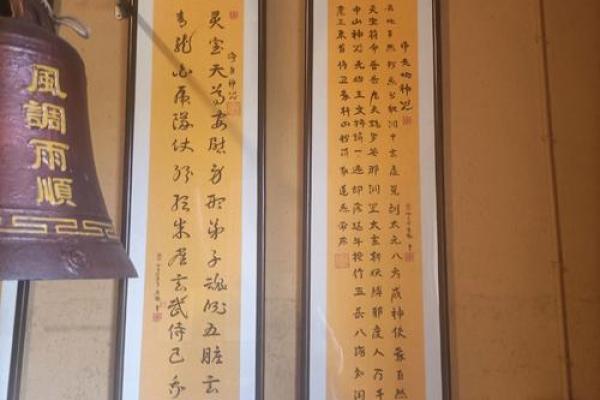 净天地神咒
天地自然秽炁分散洞中玄虚晃朗太元八方威神使我自然
灵宝符命普告九天乾罗答那洞罡太玄斩妖缚邪度人万千
中山神咒元始玉文持诵一遍却病延年按行五岳八海知闻
魔王束首侍卫我轩凶秽消散道炁常存
净身神咒
灵宝天尊安慰身形弟子魂魄五脏玄
青龙白虎隊仗纷纭朱雀玄武侍卫我
風調雨順